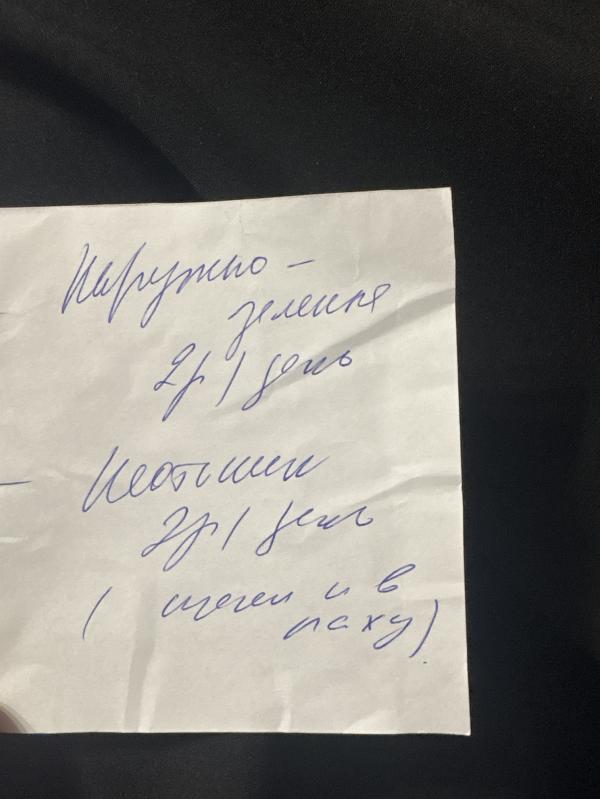 Наружно –
зеленка
2р/день
– Неотанин
2р/день
( и в
паху)